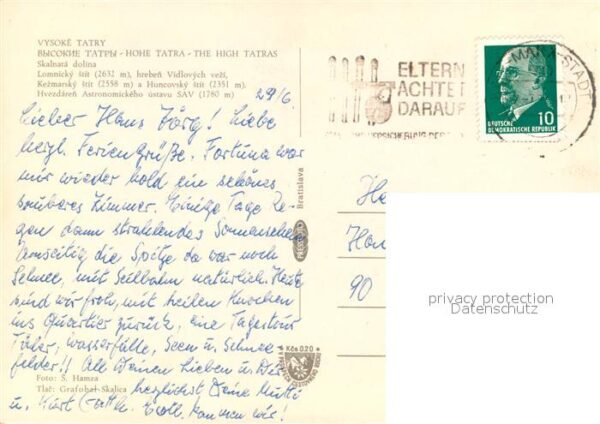 VYSOKÉ TATRY
ВЫСОКИЕ ТАТРЫ - HOHE TATRA - THE HIGH TATRAS
Skalnatá dolina
Lomnický štít (2632 m), hrebeň Vidlových veží,
Kežmarský štít (2558 m) a Huncovský štít (2351 m).
Hvezdáreň Astronomického ústavu SAV (1780 m)
29/6.
Lieber Hans Jörg! Liebe
herzl. Feriengrüße. Fortuna war
mir wieder hold ein schönes
sauberes Zimmer. Einige Tage Re-
gen dann strahlendes Sonnenschein
die Spitze da war noch
Schnee, mit Seilbahn natürlich. Heute
sind wir froh, mit heilen Knochen
ins Quartier zurück, eine Tagestour
Täler, Wasserfälle, Seen u. Schnee-
felder!! All Deinen Lieben u. Dir
herzlichst Deine Mutti
u. Kurt kommen wir!
Foto: S. Hamza
Tlač: Grafobal - Skalica
Bratislava
PRESSFOTO
Kčs 0,20
ELTERN
ACHTET
DARAUF
MARX-STADT
DEUTSCHE
DEMOKRATISCHE REPUBLIK
10
He
Han
90
privacy protection
Datenschutz